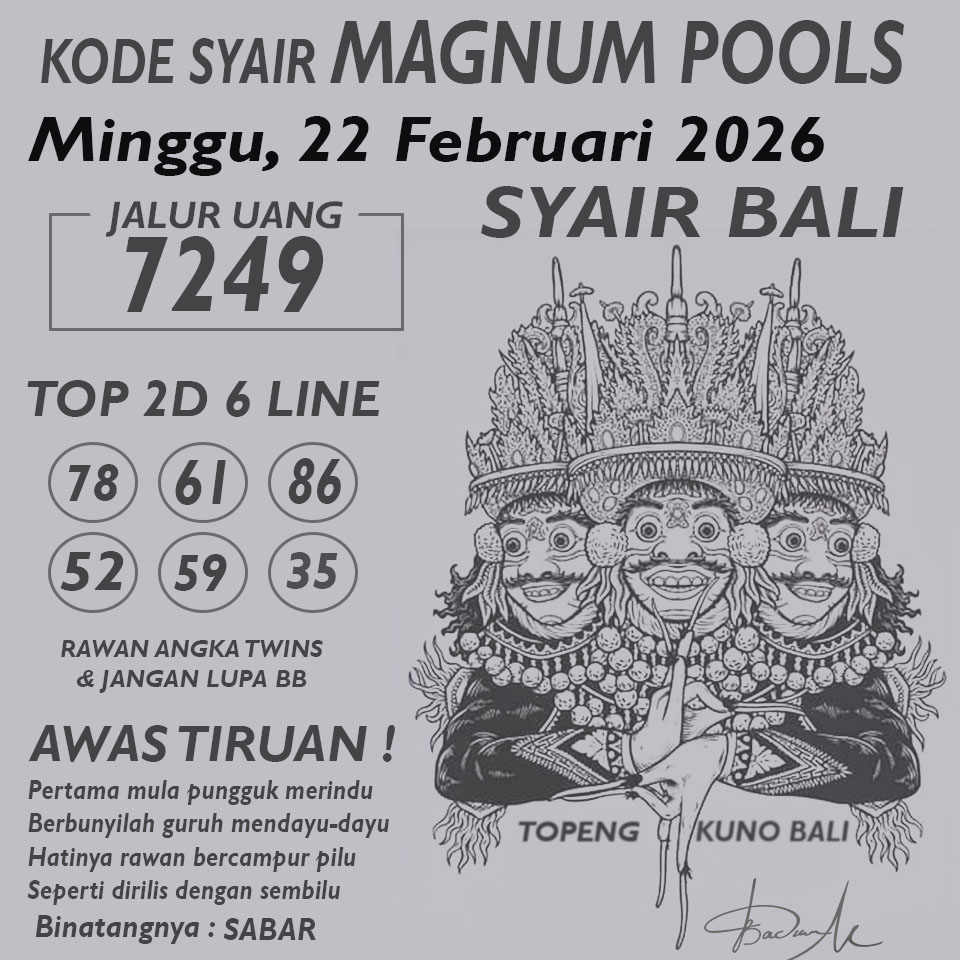 KODE SYAIR MAGNUM POOLS
Minggu, 22 Februari 2026
SYAIR BALI
JALUR UANG
7249
TOP 2D 6 LINE
78 61 86
52 59 35
RAWAN ANGKA TWINS
& JANGAN LUPA BB
AWAS TIRUAN !
Pertama mula pungguk merindu
Berbunyilah guruh mendayu-dayu
Hatinya rawan bercampur pilu
Seperti dirilis dengan sembilu
Binatangnya : SABAR
TOPENG KUNO BALI